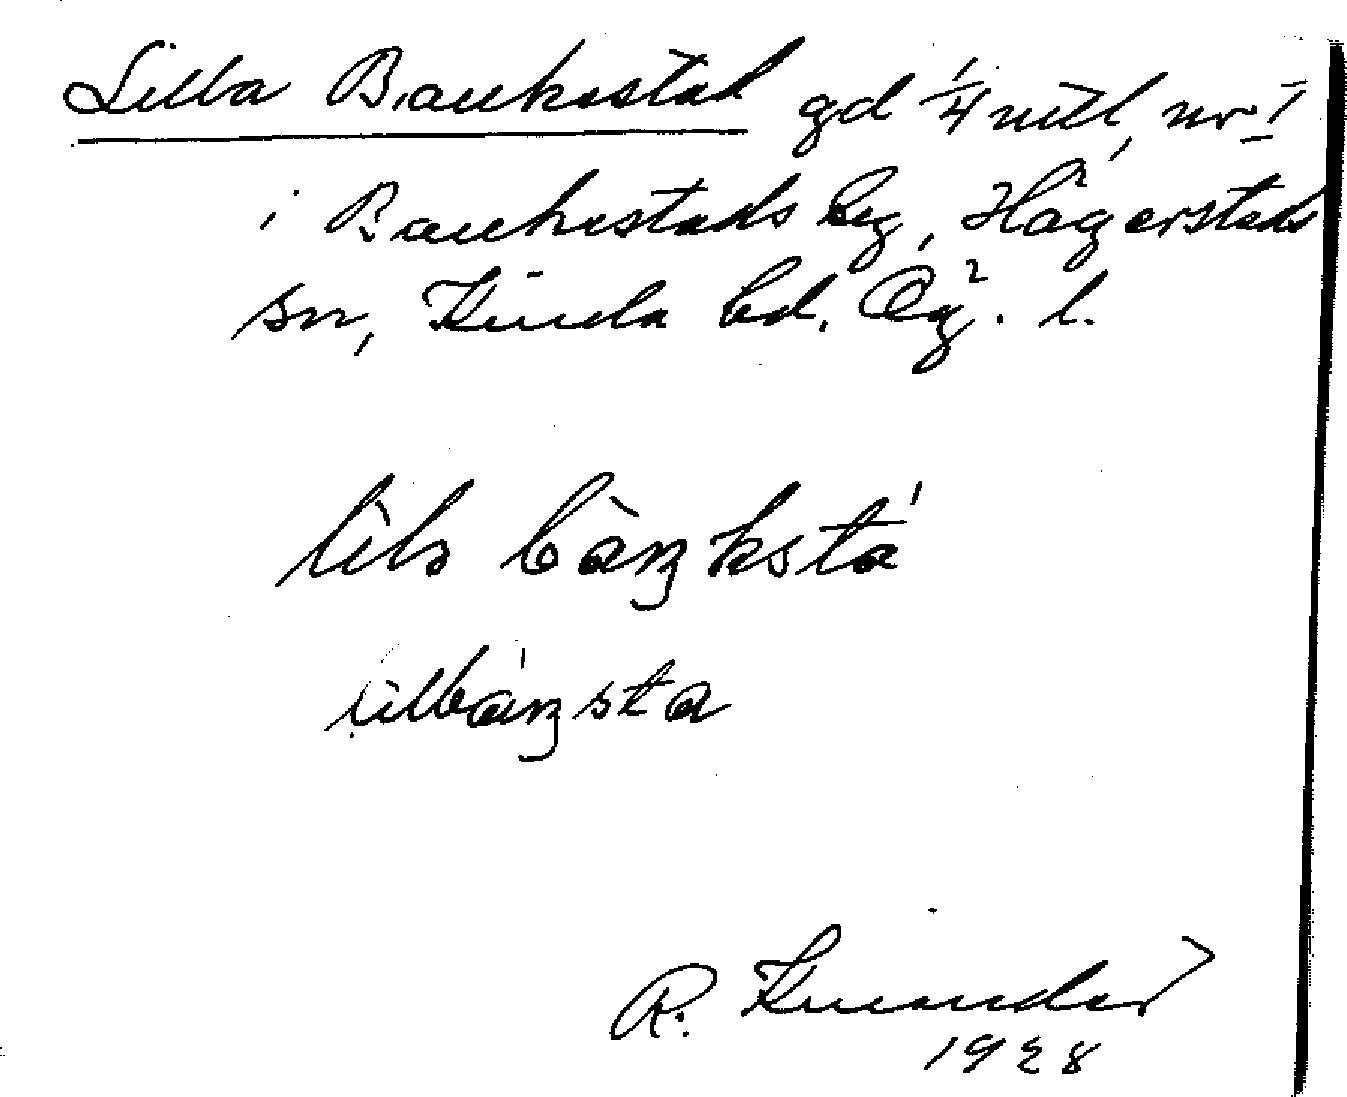 Lilla Bankestad gd 1/4 mtl, nr 1
i Bankestads by, Hägerstads
sn, Kinda hd. Ög. l.
lilla bàŋkstá
lillbáŋsta
R. Kinander
1928